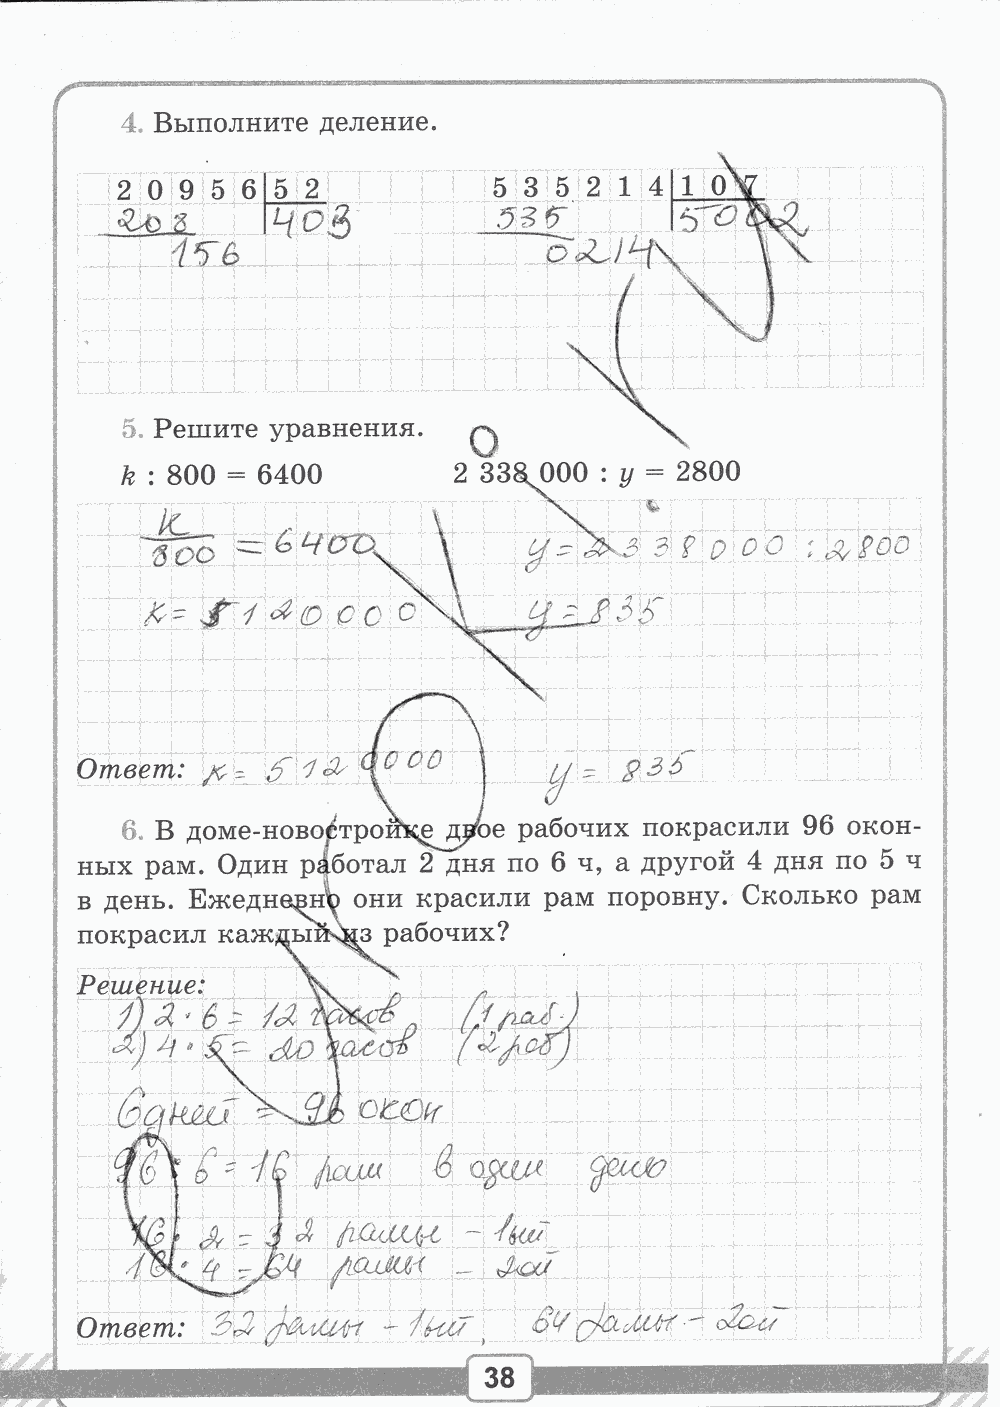 4. Выполните деление.
20956 52 535214 107
208 403 535 5002
156 0214
5. Решите уравнения.
k : 800 = 6400 2 338 000 : y = 2800
k/800 = 6400 y = 2338000 : 2800
к = 5120000 y = 835
Ответ: к = 5120000 y = 835
6. В доме-новостройке двое рабочих покрасили 96 окон-
ных рам. Один работал 2 дня по 6 ч, а другой 4 дня по 5 ч
в день. Ежедневно они красили рам поровну. Сколько рам
покрасил каждый из рабочих?
Решение:
1) 2 · 6 = 12 часов (1 раб.)
2) 4 · 5 = 20 часов (2 раб)
6 дней = 96 окон
96 : 6 = 16 рам в один день
16 · 2 = 32 рамы - 1ый
16 · 4 = 64 рамы - 2ой
Ответ: 32 рамы - 1ый, 64 рамы - 2ой
38